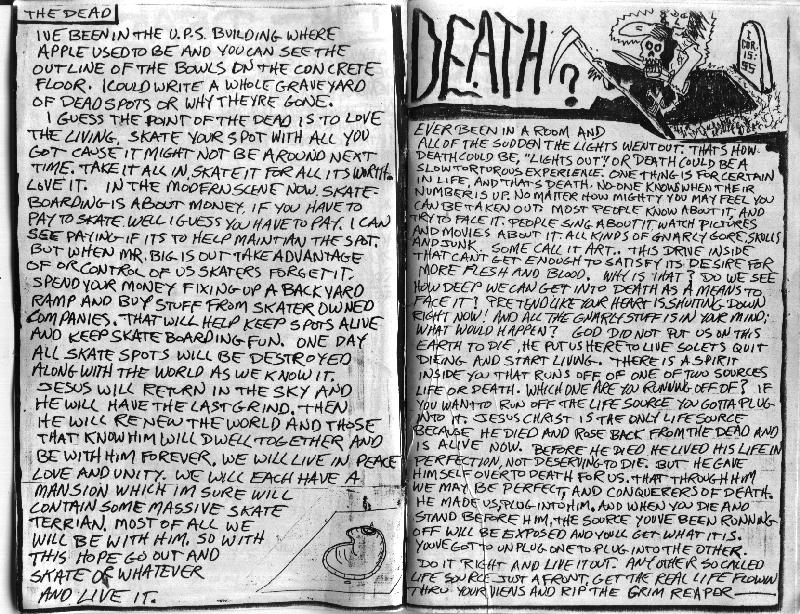 THE DEAD
I'VE BEEN IN THE U.P.S. BUILDING WHERE
APPLE USED TO BE AND YOU CAN SEE THE
OUTLINE OF THE BOWLS ON THE CONCRETE
FLOOR. I COULD WRITE A WHOLE GRAVEYARD
OF DEAD SPOTS OR WHY THEYRE GONE.
I GUESS THE POINT OF THE DEAD IS TO LOVE
THE LIVING, SKATE YOUR SPOT WITH ALL YOU
GOT CAUSE IT MIGHT NOT BE AROUND NEXT
TIME. TAKE IT ALL IN, SKATE IT FOR ALL ITS WORTH.
LOVE IT. IN THE MODERN SCENE NOW, SKATE-
BOARDING IS ABOUT MONEY, IF YOU HAVE TO
PAY TO SKATE WELL I GUESS YOU HAVE TO PAY. I CAN
SEE PAYING IF ITS TO HELP MAINTIAN THE SPOT.
BUT WHEN MR. BIG IS OUT TAKE ADVANTAGE
OF OR CONTROL OF US SKATERS FORGET IT.
SPEND YOUR MONEY FIXING UP A BACKYARD
RAMP AND BUY STUFF FROM SKATER OWNED
COMPANIES. THAT WILL HELP KEEP SPOTS ALIVE
AND KEEP SKATEBOARDING FUN. ONE DAY
ALL SKATE SPOTS WILL BE DESTROYED
ALONG WITH THE WORLD AS WE KNOW IT.
JESUS WILL RETURN IN THE SKY AND
HE WILL HAVE THE LAST GRIND. THEN
HE WILL RENEW THE WORLD AND THOSE
THAT KNOW HIM WILL DWELL TOGETHER AND
BE WITH HIM FOREVER. WE WILL LIVE IN PEACE
LOVE AND UNITY. WE WILL EACH HAVE A
MANSION WHICH IM SURE WILL
CONTAIN SOME MASSIVE SKATE
TERRIAN. MOST OF ALL WE
WILL BE WITH HIM. SO WITH
THIS HOPE GO OUT AND
SKATE OR WHATEVER
AND LIVE IT.
DEATH?
I
COR.
15:
55
EVER BEEN IN A ROOM AND
ALL OF THE SUDDEN THE LIGHTS WENT OUT. THATS HOW
DEATH COULD BE, "LIGHTS OUT" OR DEATH COULD BE A
SLOW TORTUROUS EXPERIENCE. ONE THING IS FOR CERTAIN
IN LIFE, AND THAT'S DEATH. NO-ONE KNOWS WHEN THEIR
NUMBER IS UP. NO MATTER HOW MIGHTY YOU MAY FEEL YOU
CAN BE TAKEN OUT. MOST PEOPLE KNOW ABOUT IT, AND
TRY TO FACE IT. PEOPLE SING ABOUT IT WATCH PICTURES
AND MOVIES ABOUT IT. ALL KINDS OF GNARLY GORE, SKULLS
AND JUNK. SOME CALL IT ART.. THIS DRIVE INSIDE
THAT CAN'T GET ENOUGH TO SATISFY ITS DESIRE FOR
MORE FLESH AND BLOOD. WHY IS THAT? DO WE SEE
HOW DEEP WE CAN GET INTO DEATH AS A MEANS TO
FACE IT? PRETEND LIKE YOUR HEART IS SHUTTING DOWN
RIGHT NOW! AND ALL THE GNARLY STUFF IS IN YOUR MIND;
WHAT WOULD HAPPEN? GOD DID NOT PUT US ON THIS
EARTH TO DIE, HE PUT US HERE TO LIVE SO LETS QUIT
DIEING AND START LIVING. THERE IS A SPIRIT
INSIDE YOU THAT RUNS OFF OF ONE OF TWO SOURCES
LIFE OR DEATH. WHICH ONE ARE YOU RUNNING OFF OF? IF
YOU WANT TO RUN OFF THE LIFE SOURCE YOU GOTTA PLUG
INTO IT. JESUS CHRIST IS THE ONLY LIFE SOURCE
BECAUSE HE DIED AND ROSE BACK FROM THE DEAD AND
IS ALIVE NOW. BEFORE HE DIED HE LIVED HIS LIFE IN
PERFECTION, NOT DESERVING TO DIE. BUT HE GAVE
HIMSELF OVER TO DEATH FOR US. THAT THROUGH HIM
WE MAY BE PERFECT, AND CONQUERERS OF DEATH.
HE MADE US, PLUG INTO HIM. AND WHEN YOU DIE AND
STAND BEFORE HIM, THE SOURCE YOU'VE BEEN RUNNING
OFF WILL BE EXPOSED AND YOU'LL GET WHAT IT IS.
YOUVE GOT TO UNPLUG ONE TO PLUG INTO THE OTHER.
DO IT RIGHT AND LIVE IT OUT. ANY OTHER SO CALLED
LIFE SOURCE JUST A FRONT, GET THE REAL LIFE FLOWIN
THRU YOUR VIENS AND RIP THE GRIM REAPER